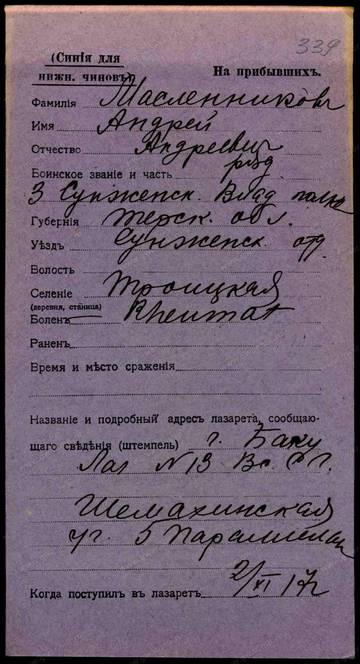 339
(Синія для
нижн. чиновъ)
На прибывшихъ.
Фамилія Масленниковъ
Имя Андрей
Отчество Андреевич
Воинское званіе и часть ряд
3 Сунженск. Влад полка
Губернія Терск. обл.
Уѣздъ Сунженск. отд
Волость
Селеніе Троицкая
(деревня, станица)
Боленъ Rheumat
Раненъ
Время и мѣсто сраженія
Названіе и подробный адресъ лазарета, сообщаю-
щаго свѣдѣнія (штемпель) г. Баку
Лаз N 13 Вс. С. Г.
Шемахинская
уг. 5 Параллельн
Когда поступилъ въ лазаретъ 2/XI 17